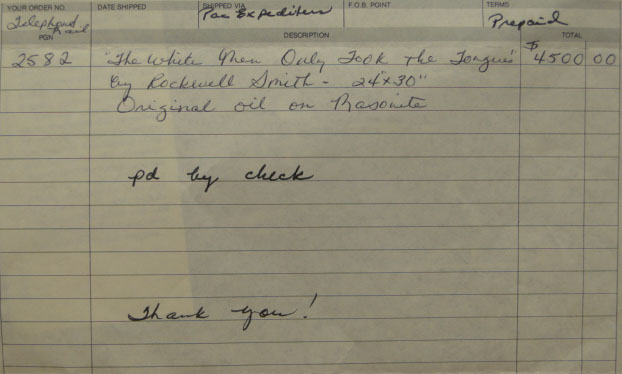 YOUR ORDER NO. DATE SHIPPED SHIPPED VIA F.O.B. POINT TERMS
Telephone Pac Expediters Prepaid
mail
PGN DESCRIPTION TOTAL
2582 "The White Men Only Took the Tongues" $4500 00
by Rockwell Smith - 24"x30"
Original oil on Masonite
pd by check
Thank you!